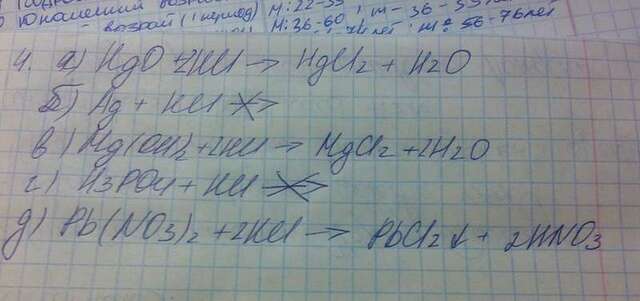 Юношеский
возраст (I период) М: 22-35 ; ж - 36-55 лет
М: 36-60 ; ж: 56-76 лет
4. а) HgO + 2HCl → HgCl2 + H2O
Б) Ag + HCl ↛
в) Mg(OH)2 + 2HCl → MgCl2 + 2H2O
г) H3PO4 + HCl ↛
д) Pb(NO3)2 + 2HCl → PbCl2 ↓ + 2HNO3